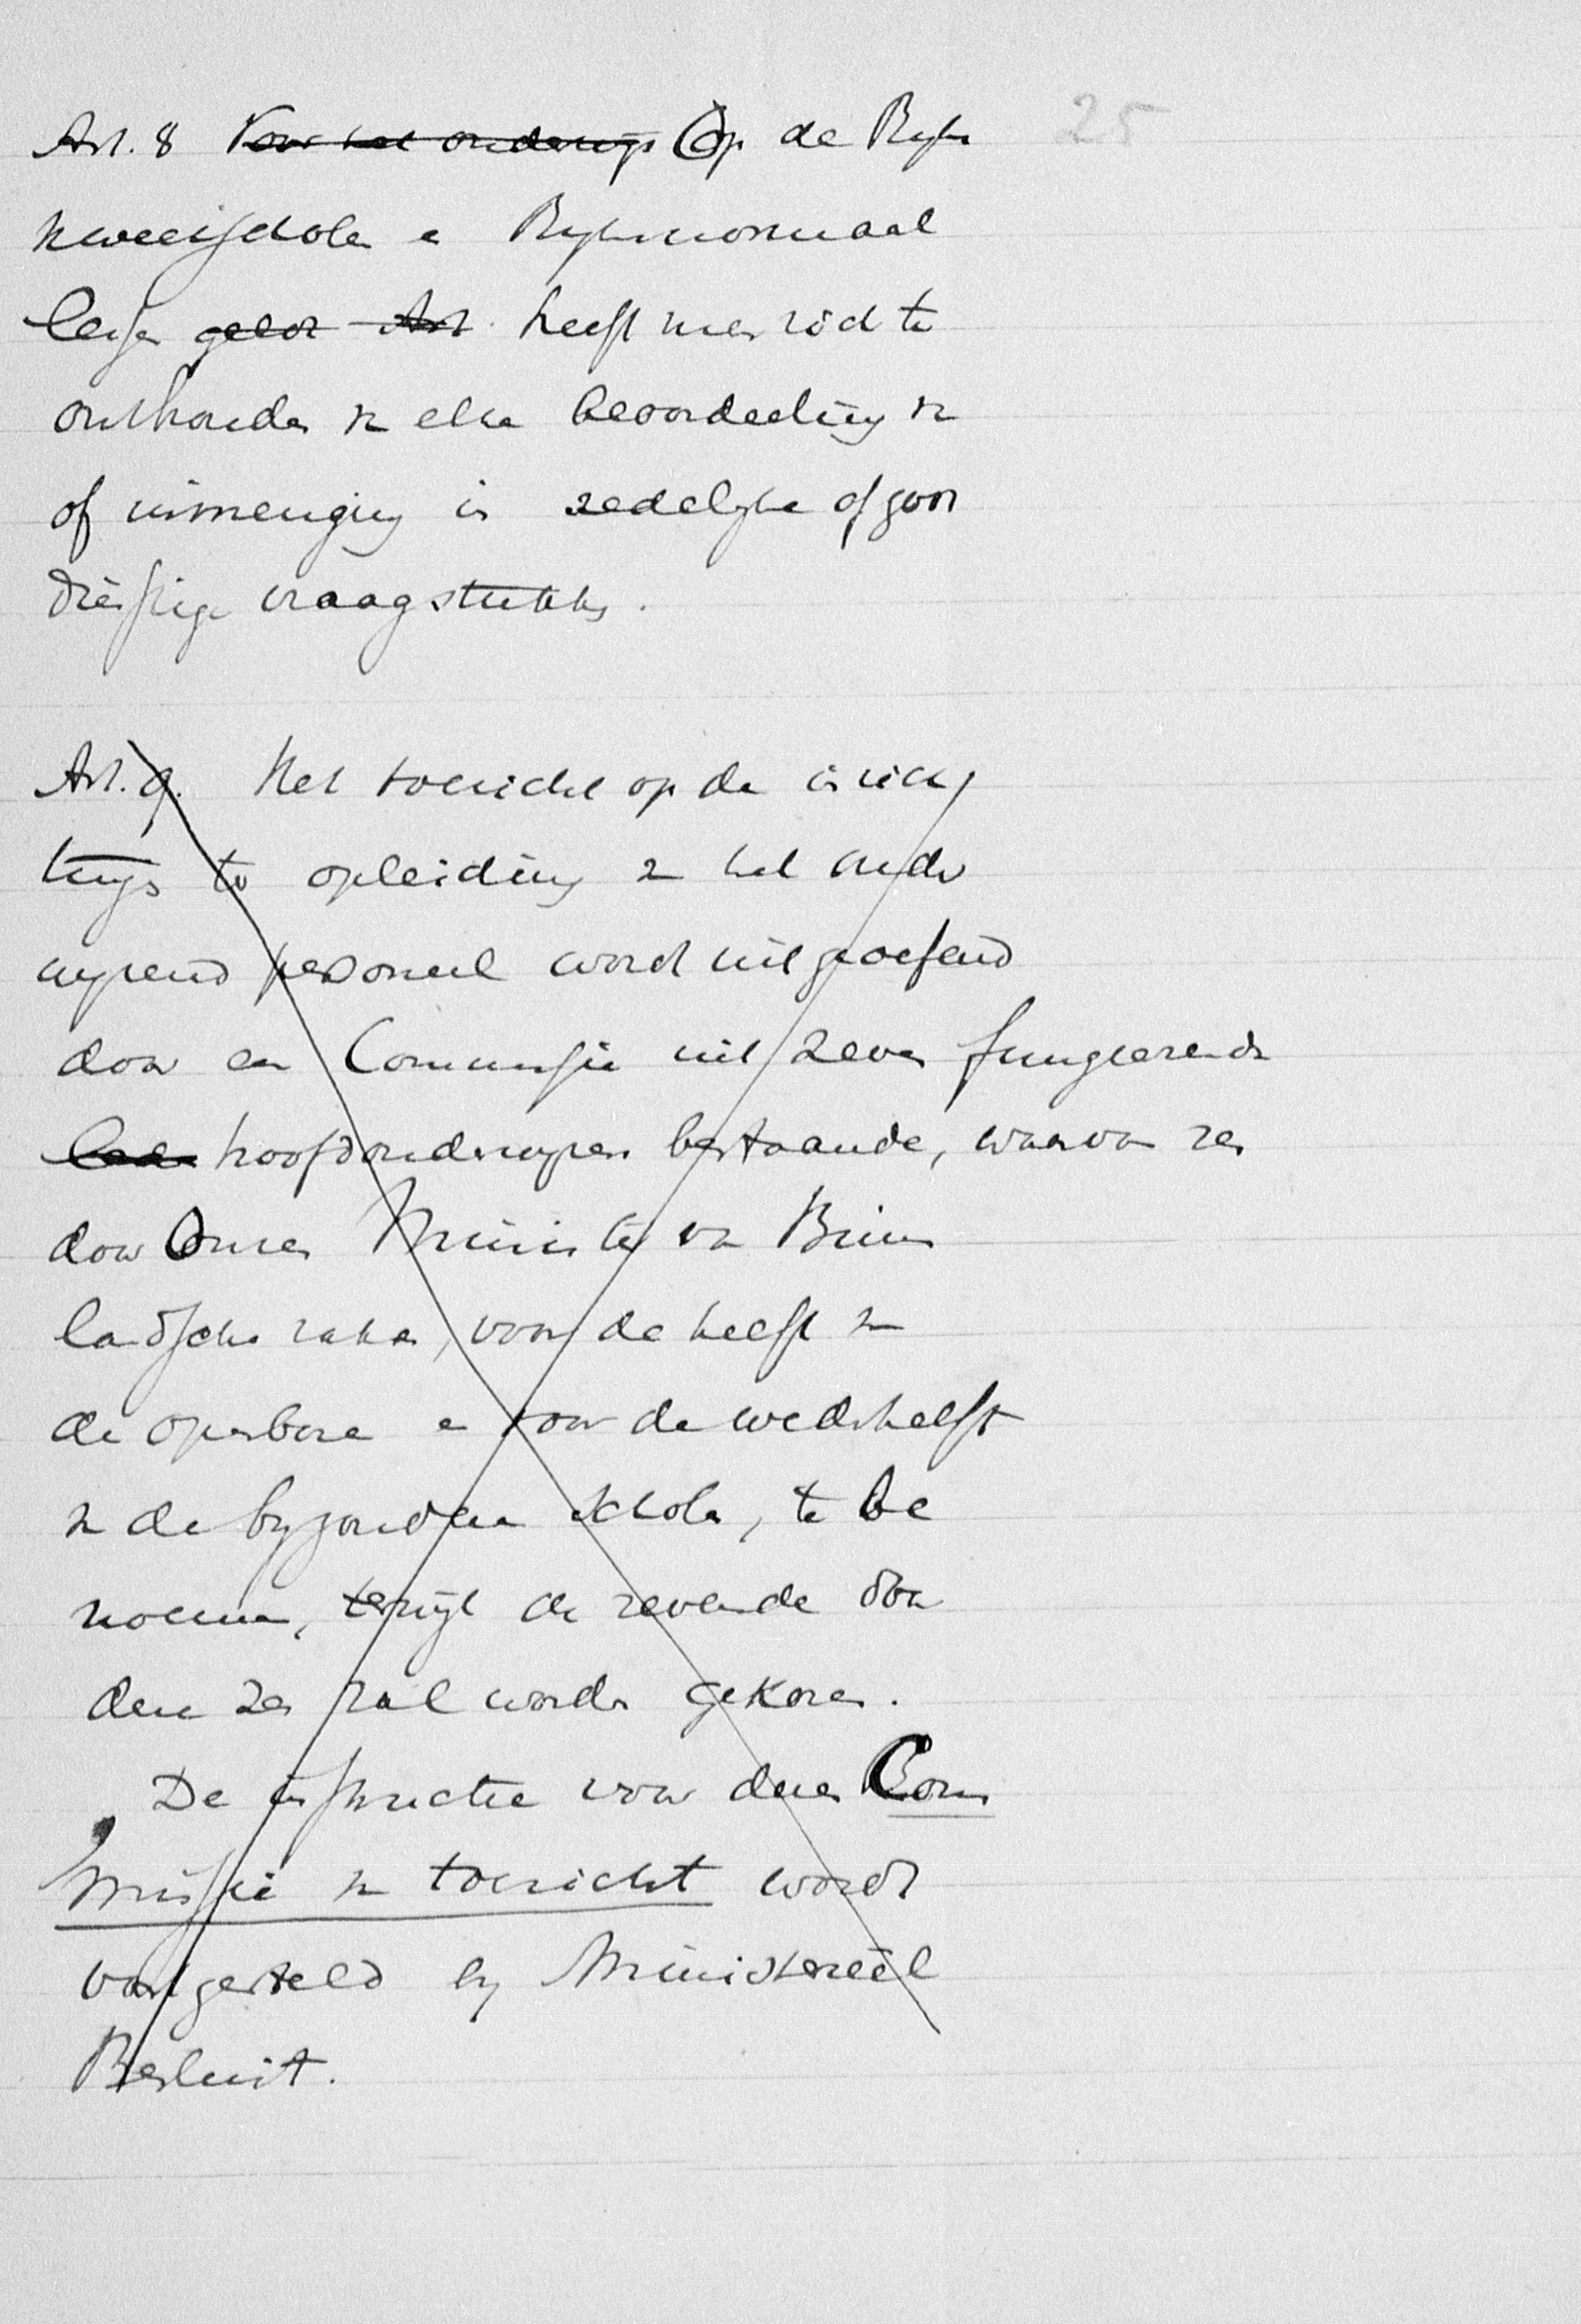 Art. 8 Voor het onderwijs Op de Rijks 25
kweekscholen en Rijksnormaal
lessen gelor Art heeft men zich te
onthouden van elke beoordeeling van
of inmenging in zedelijke of gods
dienstige vraagstukken.
Art. 9. Het toezicht op de inrich
tings ter opleiding van het onder
wijzend personeel wordt uitgeoefend
door een Commissie uit zeven fungeerende
hoofdonderwijzers bestaande, waarvan zes
door Onzen Minister van Binnen
landsche zaken, voor de helft van
de openbare en voor de wederhelft
van de byzondere scholen, te be
noemen, terwijl de zevende door
deze zes zal worden gekozen.
De instructie voor deze Com
missie van toezicht wordt
vastgesteld by Ministerieël
Besluit.